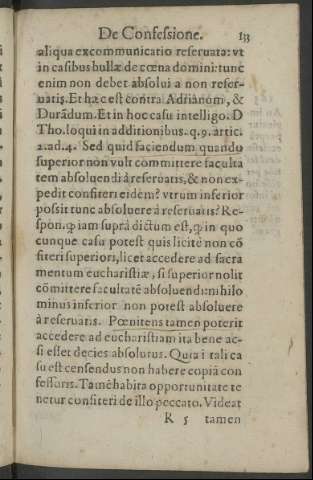 De Confessione. 133
aliqua excommunicatio reseruata: vt
in casibus bullæ de cœna domini: tunc
enim non debet absolui a non reser-
uatis. Et hæc est contra Adrianum, &
Durãdum. Et in hoc casu intelligo. D
Tho. loqui in additionibus. q. 9. artic.
2. ad. 4. Sed quid faciendum quando
superior non vult committere faculta
tem absoluendi à reseruatis, & non ex-
pedit confiteri eidẽ? vtrum inferior
possit tunc absoluere à reseruatis? Re-
spon. ꝙ iam suprà dictum est, ꝙ in quo
cunque casu potest quis licitè non cõ
fiteri superiori, licet accedere ad sacra
mentum eucharistiæ, si superior nolit
cõmittere facultatẽ absoluendi: nihilo
minus inferior non potest absoluere
à reseruatis. Pœnitens tamen poterit
accedere ad eucharistiam ita bene ac-
si esset decies absolutus. Quia i tali ca
su est censendus non habere copiã con
fessoris. Tamẽ habita opportunitate te
netur confiteri de illo peccato. Videat
R 5 tamen